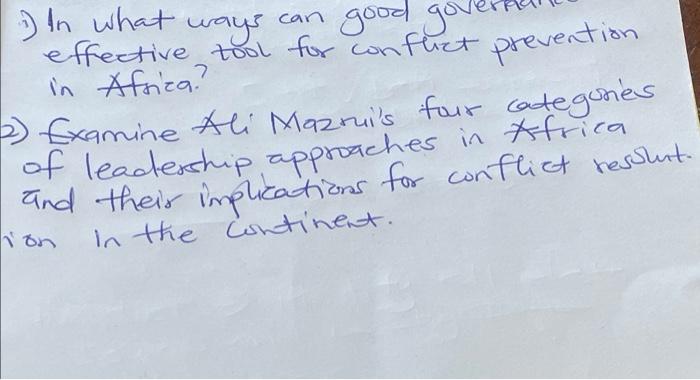 1) In what ways can good governance
effective tool for conflict prevention
in Africa?
2) Examine Ali Mazrui's four categories
of leadership approaches in Africa
and their implications for conflict resolut-
ion in the continent.